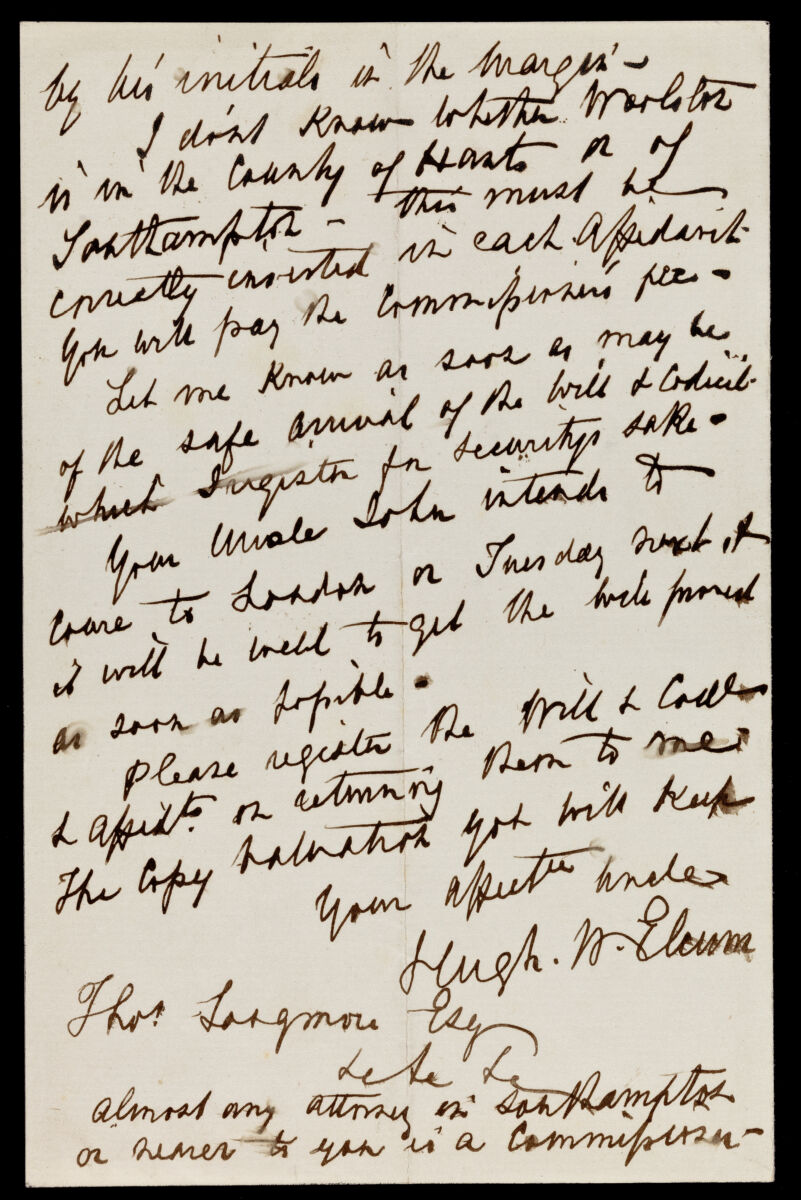 by his initials in the margin -
I don't know whether Woolston
is in the County of Hants or of
Southampton - this must be
correctly inserted in each Affidavit
You will pay the Commissioner's fee -
Let me know as soon as may be
of the safe arrival of the Will & Codicil
which I register for security's sake -
Your Uncle John intends to
come to London on Tuesday next &
it will be well to get the will proved
as soon as possible -
Please register the Will & Codl
& Affidts. on returning them to me
The Copy Valuation you will keep
Your affecte uncle
Hugh. W. Elcum
Thos. Longmore Esq
&c &c &c
almost any attorney in Southampton
or nearer to you is a Commissioner -